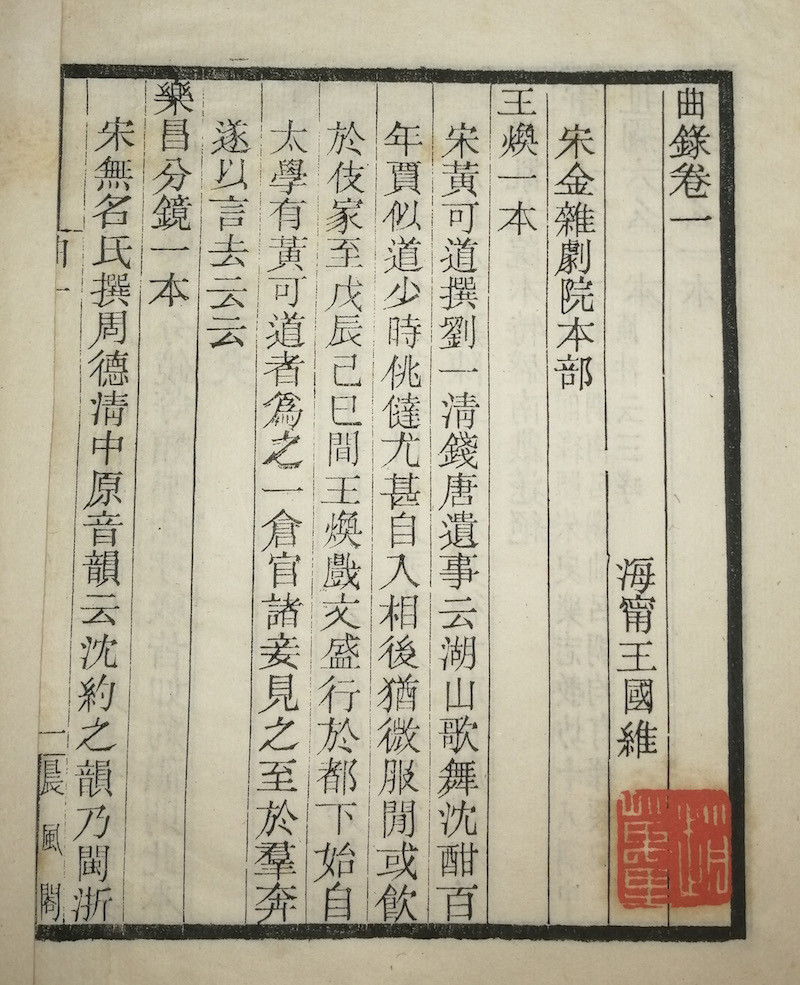 曲錄卷一
海甯王國維
宋金雜劇院本部
王煥一本
宋黃可道撰劉一淸錢唐遺事云湖山歌舞沈酣百
年賈似道少時佻㒓尤甚自入相後猶微服閒或飮
於伎家至戊辰己巳間王煥戲文盛行於都下始自
太學有黃可道者爲之一倉官諸妾見之至於羣奔
遂以言去云云
樂昌分鏡一本
宋無名氏撰周德淸中原音韻云沈約之韻乃閩浙
曲一
一
晨風閣